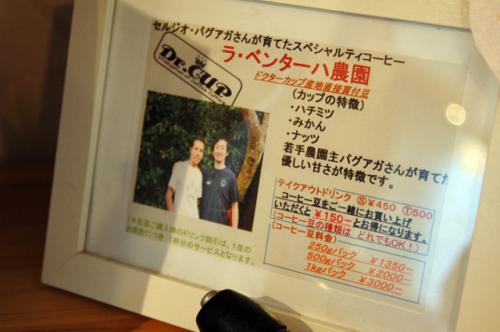 セルジオ・バグアガさんが育てたスペシャルティコーヒー
Dr.CUP
ラ・ベンターハ農園
ドクターカップ産地直接買付豆
(カップの特徴)
・ハチミツ
・みかん
・ナッツ
若手農園主バグアガさんが育てた
優しい甘さが特徴です。
テイクアウトドリンク Ⓢ¥450 Ⓣ500
コーヒー豆をご一緒にお買い上げ
いただくと ¥150ー とお得になります。
(コーヒー豆の種類は どれでもOK!)
(コーヒー豆料金)
250gパック ¥1350ー
500gパック ¥2000ー
1kgパック ¥3000ー
(*お豆ご購入時のドリンク割引は、1度の
お会計につき、1杯分のサービスとなります。